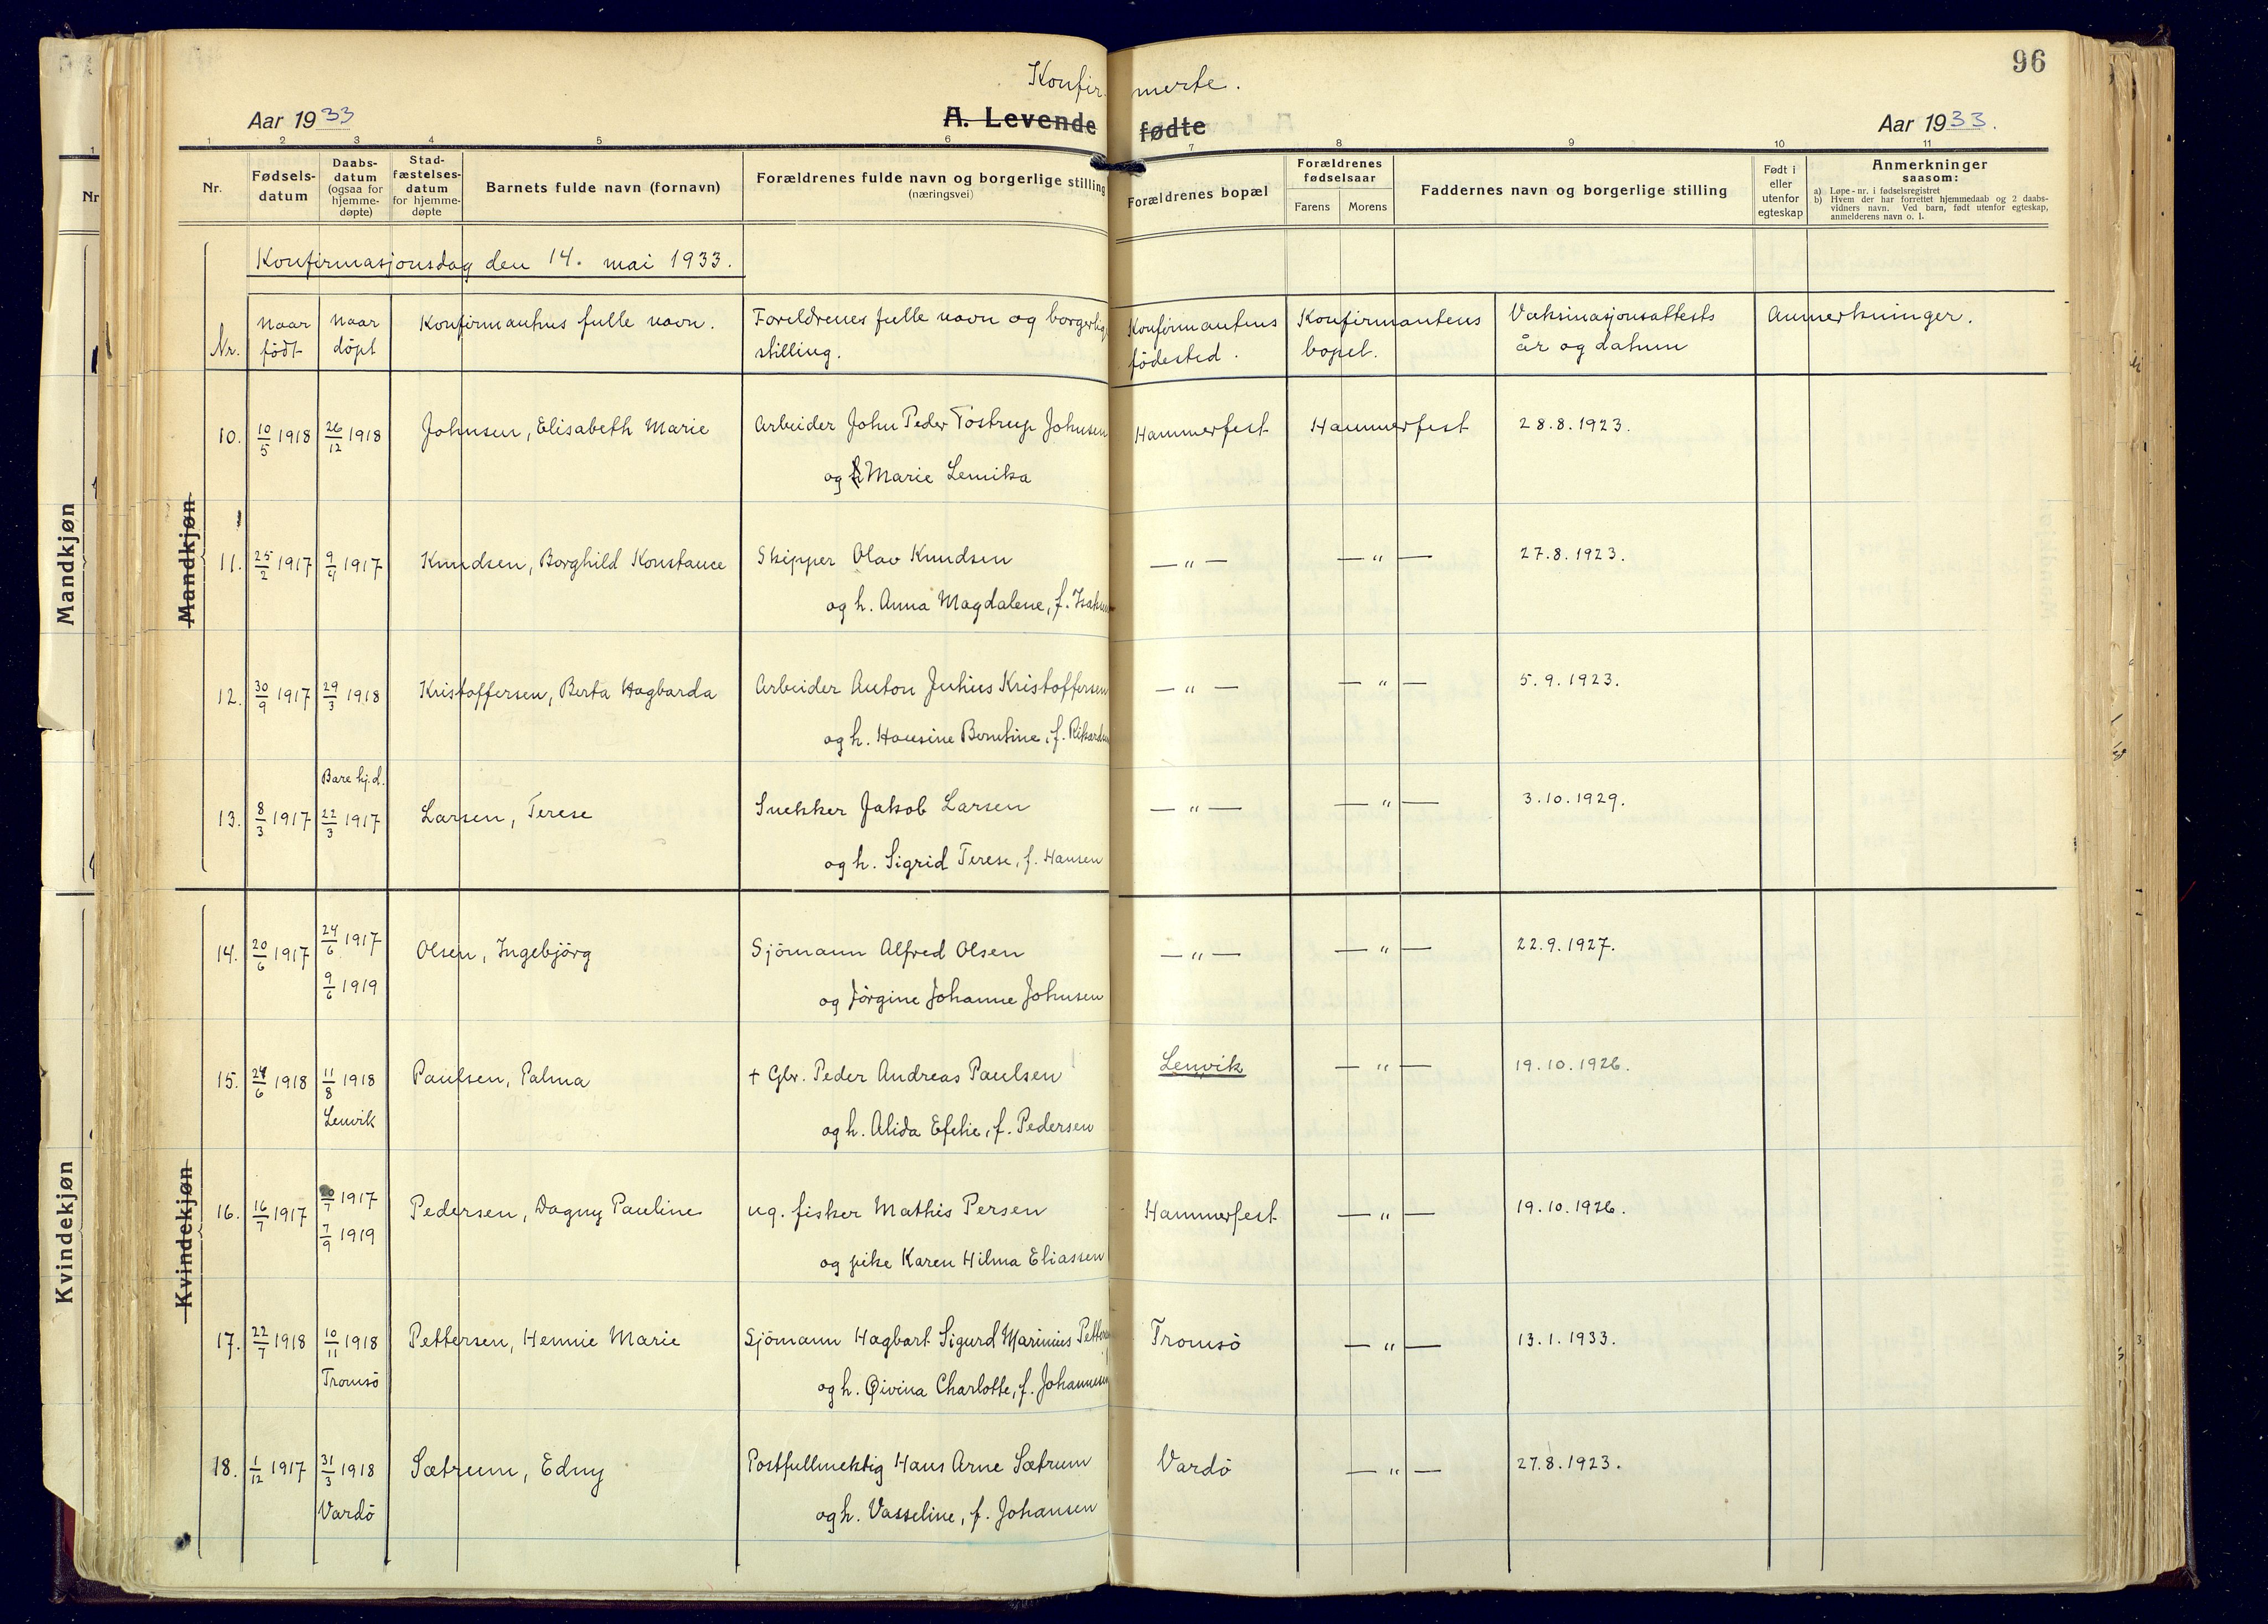 96
Konfirmerte.
Aar 1933 A. Levende fødte Aar 1933.
1 2 3 4 5 6 7 8 9 10 11
Nr. Fødselsdatum Daabsdatum (ogsaa for hjemmedøpte) Stadfæstelsesdatum for hjemmedøpte Barnets fulde navn (fornavn) Forældrenes fulde navn og borgerlige stilling (næringsvei) Forældrenes bopæl Forældrenes fødselsaar Farens Morens Faddernes navn og borgerlige stilling Født i eller utenfor egteskap Anmerkninger saasom:
a) Løpe-nr. i fødselsregistret
b) Hvem der har forrettet hjemmedaab og 2 daabsvidners navn. Ved barn, født utenfor egteskap, anmelderens navn o. l.
Konfirmasjonsdag den 14. mai 1933.
Nr. Naar født Naar döpt Konfirmantens fulle navn. Foreldrenes fulle navn og borgerlige stilling. Konfirmantens födested. Konfirmantens bopel. Vaksinasjonsattests år og datum Anmerkninger.
Mandkjøn
Mandkjøn
10. 10/5 1918 26/12 1918 Johnsen, Elisabeth Marie Arbeider John Peder Tostrup Johnsen Hammerfest Hammerfest 28.8.1923.
og h Marie Lemika
11. 25/2 1917 9/4 1917 Knudsen, Borghild Konstance Skipper Olav Knudsen — " — — " — 27.8.1923.
og h. Anna Magdalene, f.
12. 30/9 1917 29/3 1918 Kristoffersen, Berta Hagbarda Arbeider Anton Julius Kristoffersen — " — — " — 5.9.1923.
og h. Hansine f.
Bare hj.d.
13. 8/3 1917 22/3 1917 Larsen, Terese Snekker Jakob Larsen — " — — " — 3.10.1929.
og h. Sigrid Terese, f. Hansen
Kvindekjøn
Kvindekjøn
14. 20/6 1917 24/6 1917 Olsen, Ingebjörg Sjömann Alfred Olsen — " — — " — 22.9.1927.
9/6 1919 og Jörgine Johanne Johnsen
15. 24/6 1918 11/8 1918 Paulsen, Palma † Gbr. Peder Andreas Paulsen Lenvik — " — 19.10.1926.
Lenvik og h. Alida Efelie, f. Pedersen
16. 16/7 1917 20/7 1917 Pedersen, Dagny Pauline ug. fisker Mathis Persen Hammerfest — " — 19.10.1926.
7/9 1919 og pike Karen Hilma Eliassen
17. 22/7 1918 10/11 1918 Pettersen, Hennie Marie Sjömann Hagbart Sigurd Marinius Pettersen Tromsö — " — 13.1.1933.
Tromsö og h. Öivina Charlotte, f. Johannesen
18. 1/12 1917 31/3 1918 Sætrum, Edny Postfullmektig Hans Arne Sætrum Vardö — " — 27.8.1923.
Vardö og h. Vasseline, f. Johansen